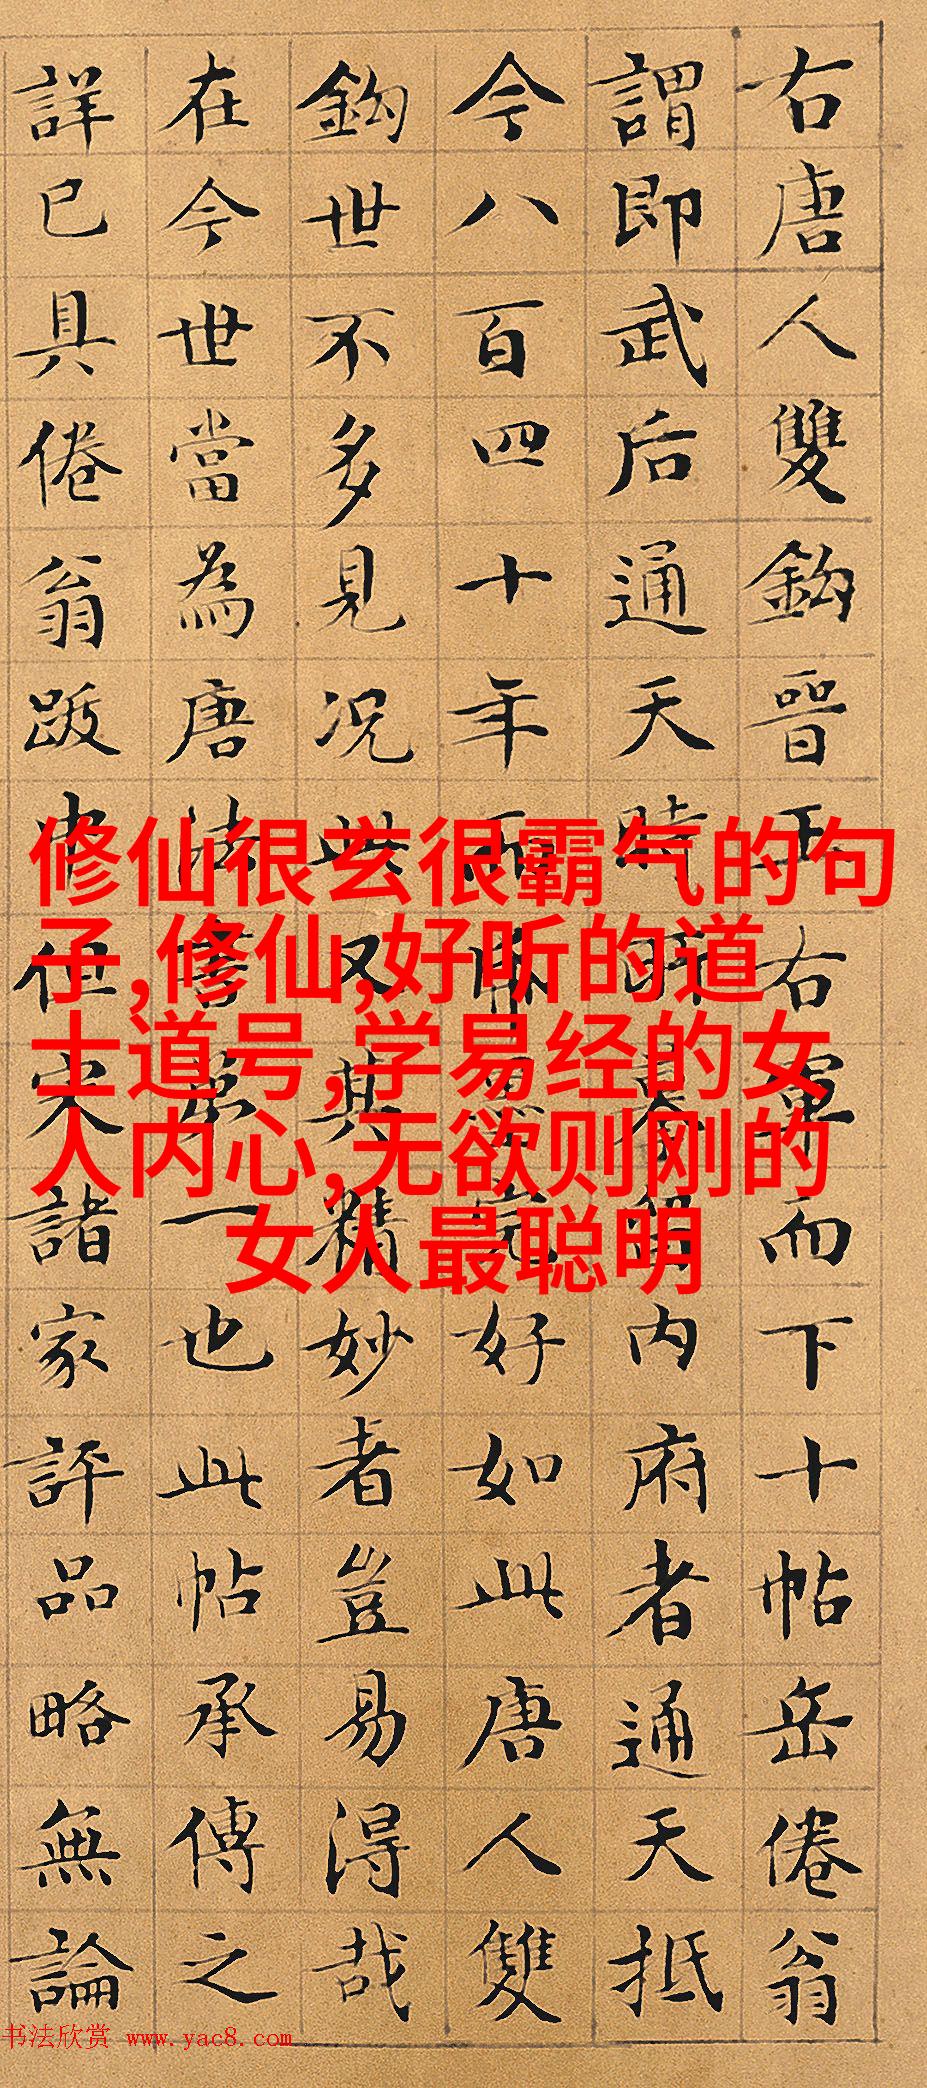 右唐人雙鈎晉王右軍而下十帖岳倦翁
謂即武后通天時所摹留内府者通天抵
今八百四十年而帋墨完好如此唐人雙
鈎世不多見况此又其精妙者豈易得哉
在今世當為唐法書第一也此帖承傳之
詳已具倦翁跋中但宋諸家評品略無論
修仙很玄很霸气的句
子,修仙,好听的道
士道号,学易经的女
人内心,无欲则刚的
女人最聪明
书法欣赏 www.yac8.com